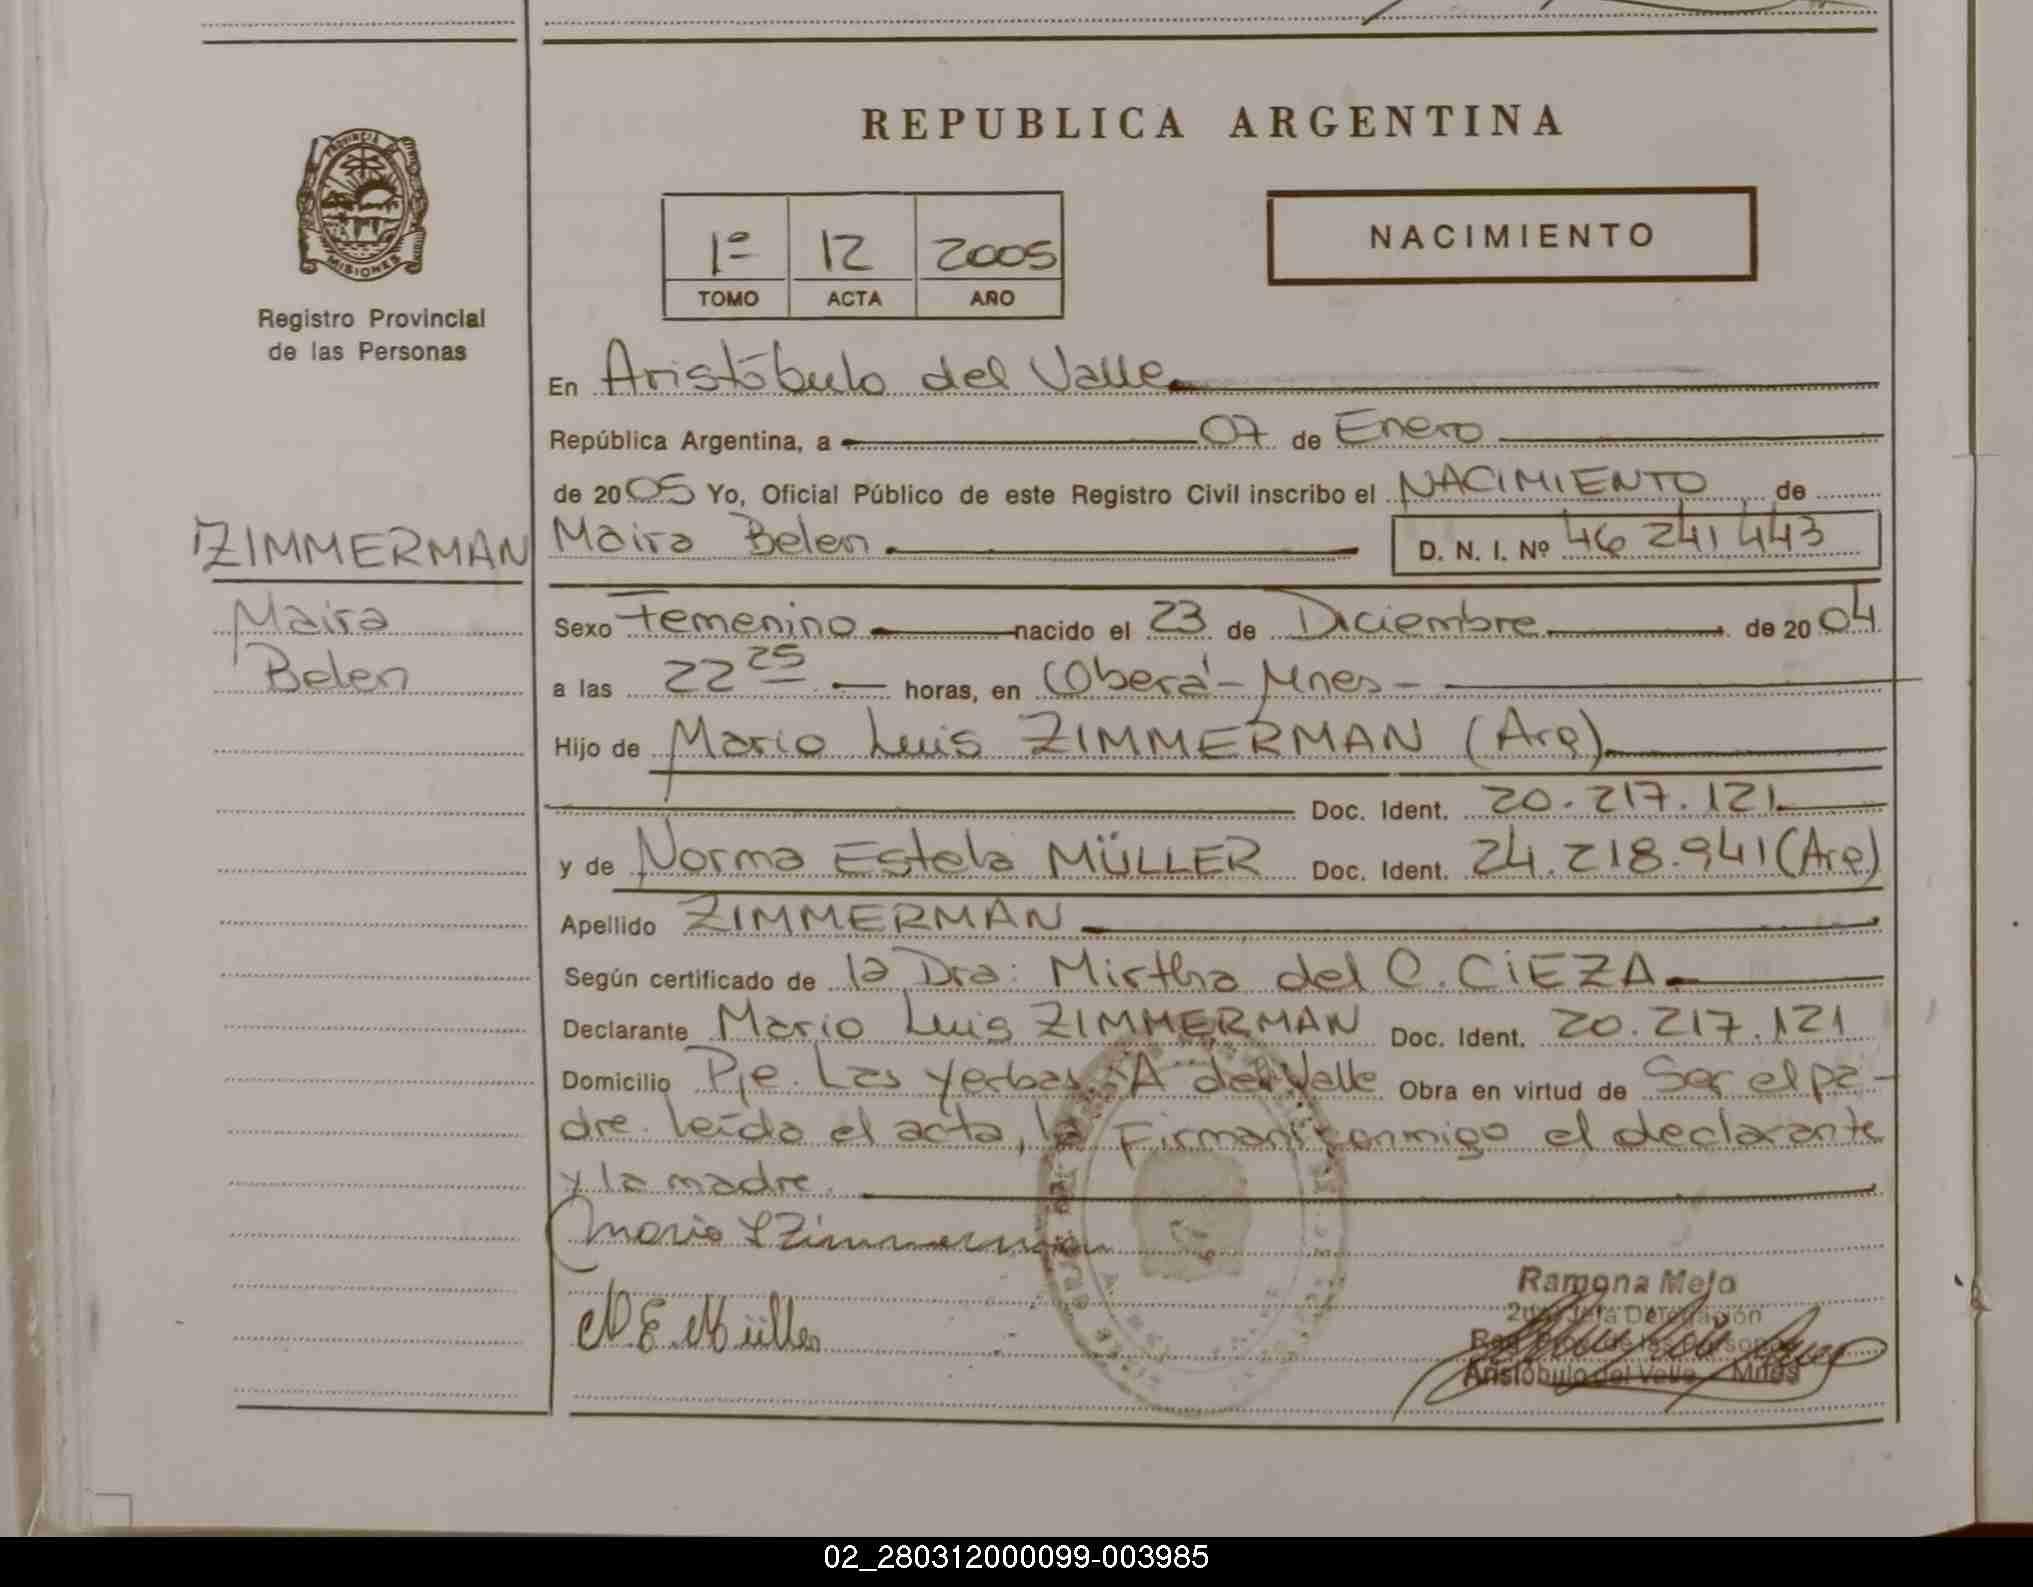 REPUBLICA ARGENTINA
PROVINCIA DE
MISIONES
Registro Provincial
de las Personas
1º 12 2005
TOMO ACTA AÑO
NACIMIENTO
En Aristóbulo del Valle
República Argentina, a 07 de Enero
de 2005 Yo, Oficial Público de este Registro Civil inscribo el NACIMIENTO de
ZIMMERMAN
Maira Belen D. N. I. Nº 46 241 443
Maira
Belen
Sexo Femenino nacido el 23 de Diciembre de 2004
a las 22 25 horas, en Oberá - Mnes -
Hijo de Mario Luis ZIMMERMAN (Arg)
Doc. Ident. 20.217.121
y de Norma Estela MÜLLER Doc. Ident. 24.218.941 (Arg)
Apellido ZIMMERMAN
Según certificado de la Dra: Mirtha del C. CIEZA
Declarante Mario Luis ZIMMERMAN Doc. Ident. 20.217.121
Domicilio Pje. Las Yerbas. A del Valle Obra en virtud de Ser el pa-
dre. leído el acta, la Firman conmigo el declarante
y la madre.
Mario L Zimmerman
N. E. Müller
Ramona Melo
Delegación
Aristóbulo del Valle Mnes
02_280312000099-003985